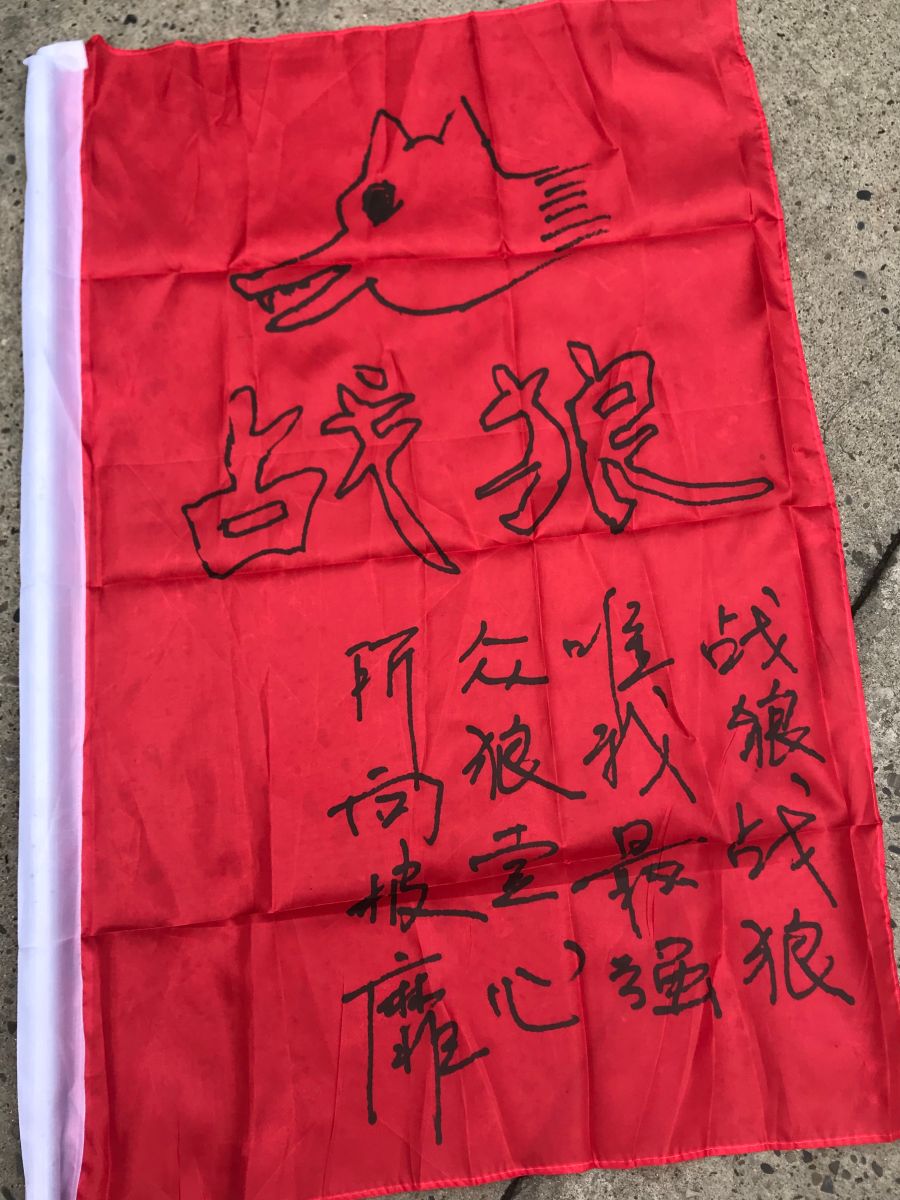 战狼
战狼战狼
唯我最强
众狼壹心
所向披靡